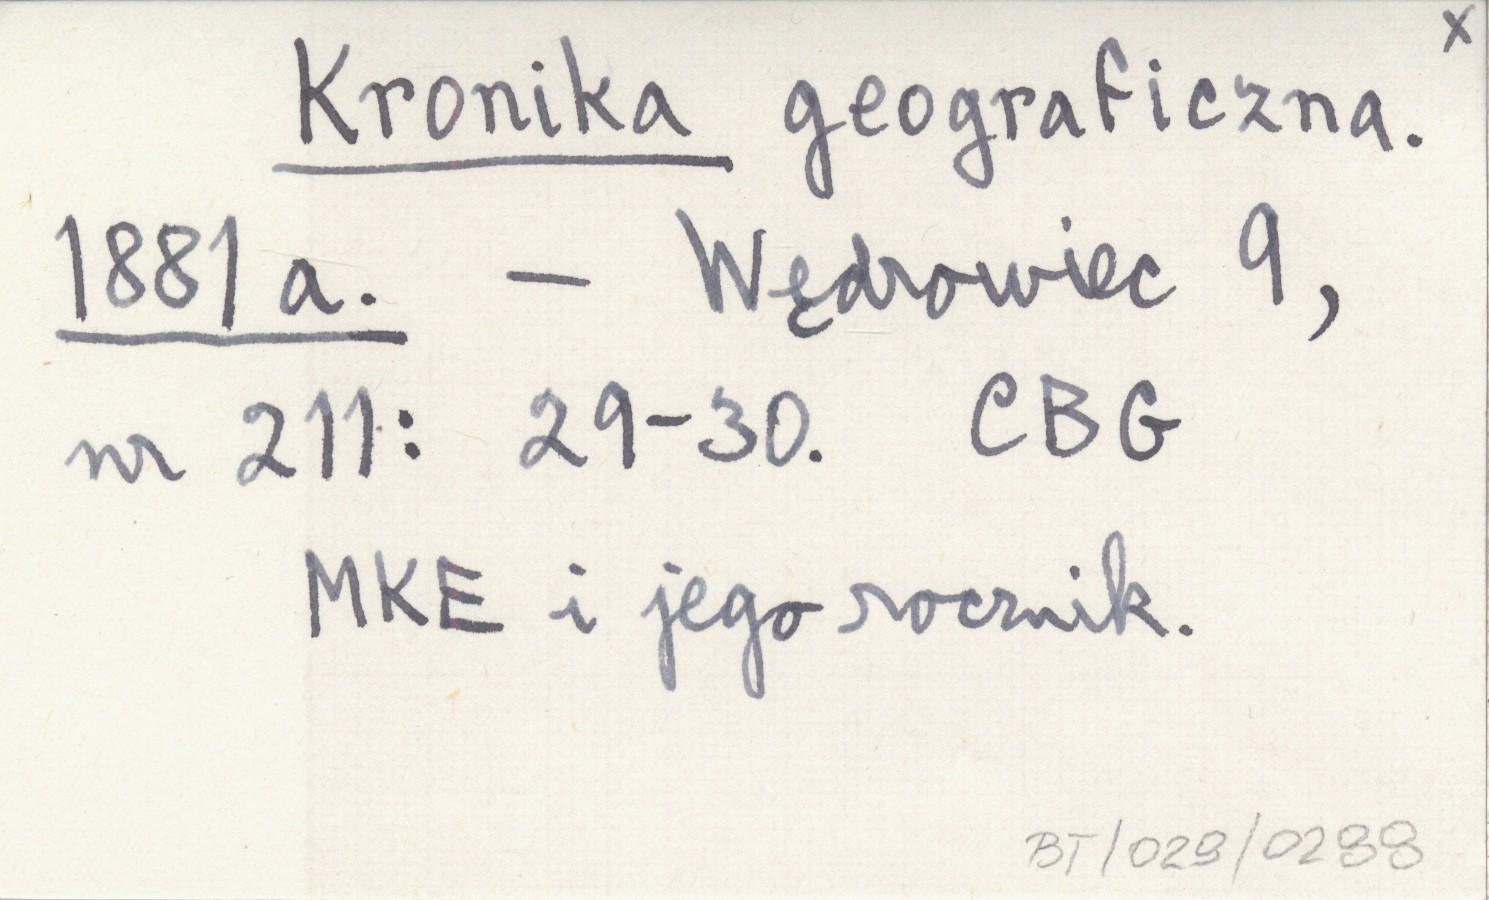 x
Kronika geograficzna.
1881 a. – Wędrowiec 9,
nr 211: 29-30. CBG
MKE i jego rocznik.
BT/029/0288